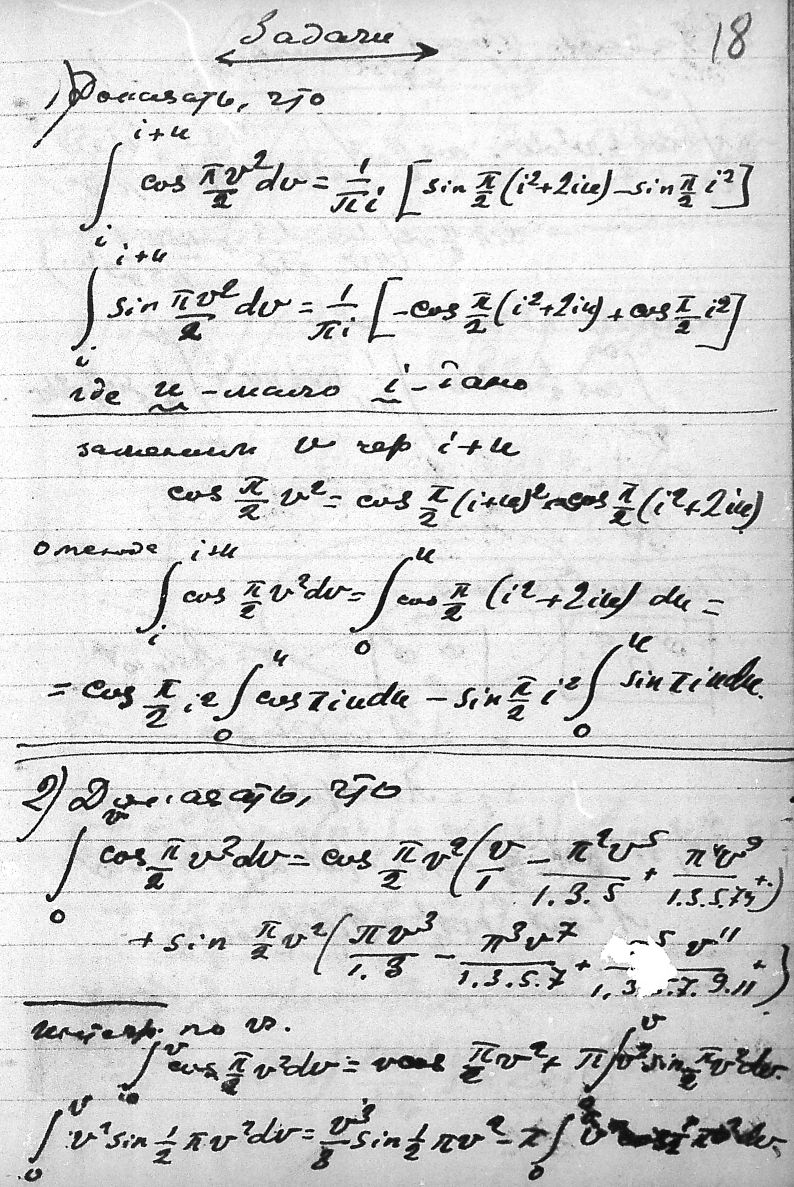 Задачи
18
1) Доказать, что
∫_i^{i+u} cos πv²/2 dv = 1/πi [sin π/2 (i²+2iu) – sin π/2 i²]
∫_i^{i+u} sin πv²/2 dv = 1/πi [-cos π/2 (i²+2iu) + cos π/2 i²]
где u – мало i – дано
заменим v чер i+u
cos π/2 v² = cos π/2 (i+u)² = cos π/2 (i²+2iu)
∫_i^{i+u} cos π/2 v² dv = ∫_0^u cos π/2 (i²+2iu) du =
= cos π/2 i² ∫_0^u cos πiu du – sin π/2 i² ∫_0^u sin πiu du.
2) Доказать, что
∫_0^v cos π/2 v² dv = cos π/2 v² (v/1 – π²v⁵/1.3.5 + π⁴v⁹/1.3.5.7.9 + )
+ sin π/2 v² (πv³/1.3 – π³v⁷/1.3.5.7 + ⁵v¹¹/1.3.5.7.9.11 + )
интегр. по v.
∫_0^v cos π/2 v² dv = v cos π/2 v² + π ∫_0^v v² sin π/2 v² dv.
∫_0^v v² sin 1/2 πv² dv = v³/3 sin 1/2 πv² – π ∫_0